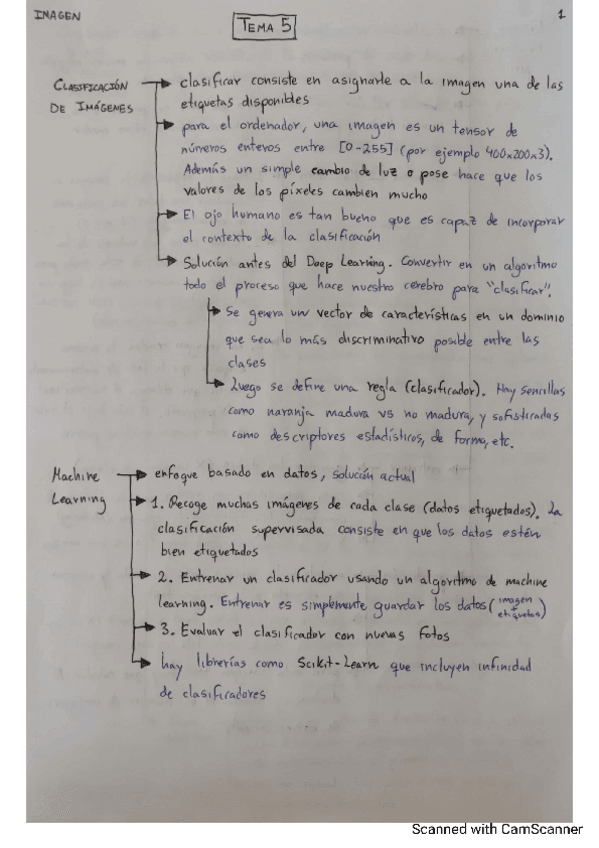 IMAGEN
1
TEMA 5
CLASIFICACIÓN
DE IMÁGENES
clasificar consiste en asignarle a la imagen una de las
etiquetas disponibles
para el ordenador, una imagen es un tensor de
números enteros entre [0-255] (por ejemplo 400x200x3).
Además un simple cambio de luz o pose hace que los
valores de los píxeles cambien mucho
El ojo humano es tan bueno que es capaz de incorporar
el contexto de la clasificación
Solución antes del Deep Learning. Convertir en un algoritmo
todo el proceso que hace nuestro cerebro para "clasificar".
Se genera un vector de características en un dominio
que sea lo más discriminativo posible entre las
clases
Luego se define una regla (clasificador). Hay sencillas
como naranja madura vs no madura, y sofisticadas
como descriptores estadísticos, de forma, etc.
Machine
Learning
enfoque basado en datos, solución actual
1. Recoge muchas imágenes de cada clase (datos etiquetados). La
clasificación supervisada consiste en que los datos estén
bien etiquetados
2. Entrenar un clasificador usando un algoritmo de machine
learning. Entrenar es simplemente guardar los datos (imagen + etiquetas)
3. Evaluar el clasificador con nuevas fotos
hay librerías como Scikit-Learn que incluyen infinidad
de clasificadores
Scanned with CamScanner